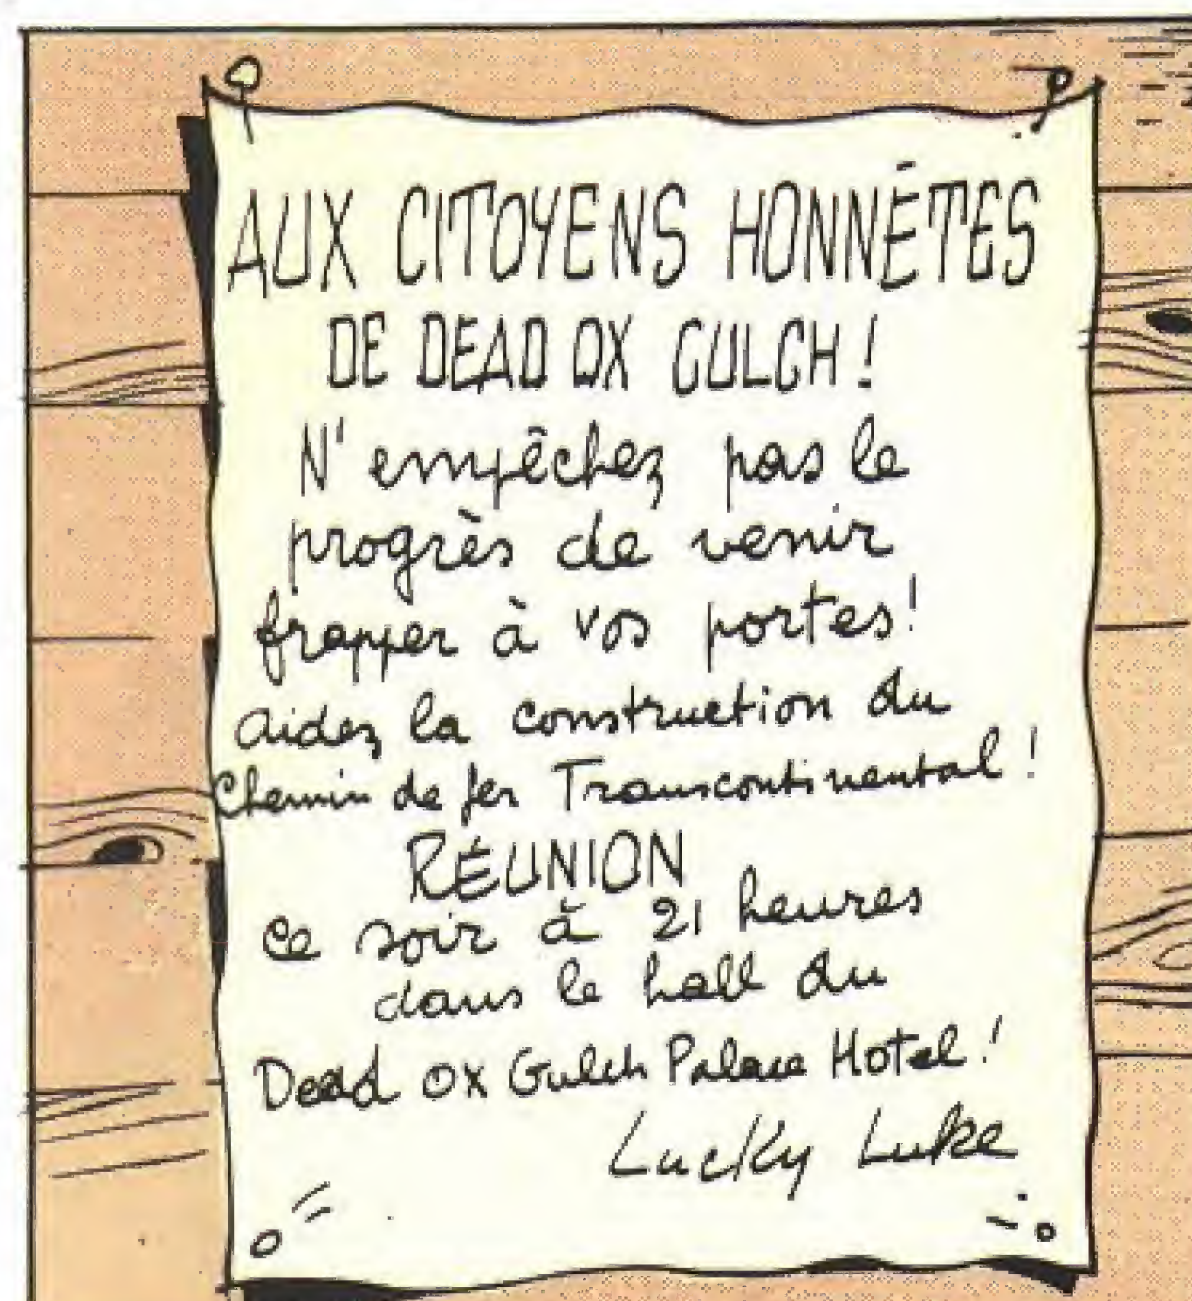 AUX CITOYENS HONNÊTES
DE DEAD OX GULCH!
N'empêchez pas le
progrès de venir
frapper à vos portes!
aidez la construction du
Chemin de fer Transcontinental!
RÉUNION
ce soir à 21 heures
dans le hall du
Dead Ox Gulch Palace Hotel!
Lucky Luke